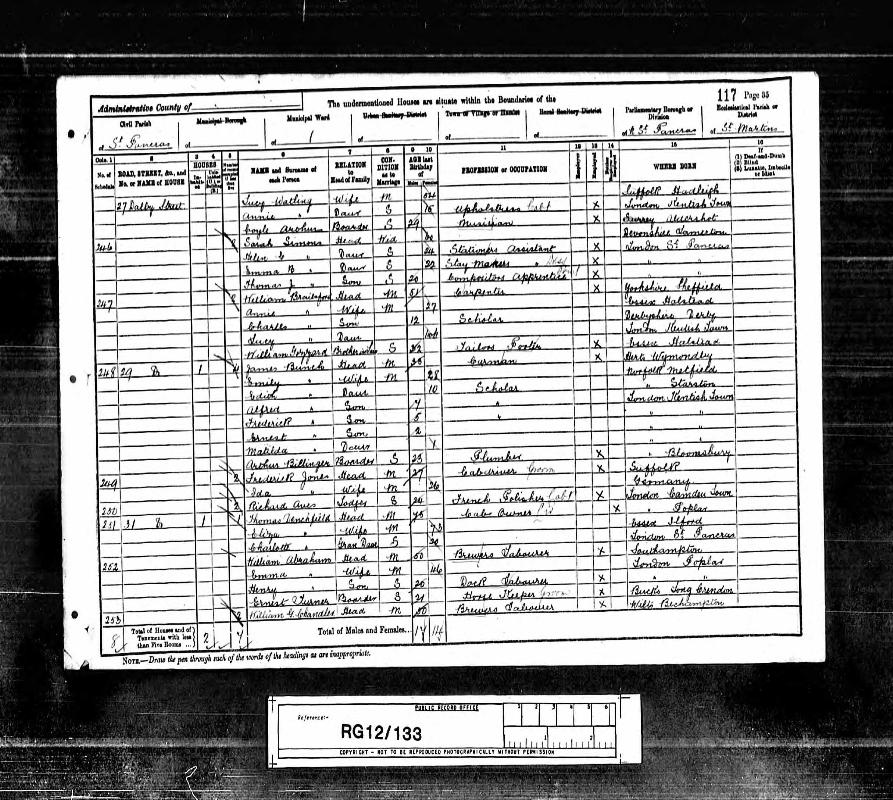 117 Page 35
Administrative County of
The undermentioned Houses are situate within the Boundaries of the
Civil Parish
Municipal Borough
Municipal Ward
Urban Sanitary District
Town or Village or Hamlet
Rural Sanitary District
Parliamentary Borough or Division
Ecclesiastical Parish or District
of St. Pancras of of of of of St. Pancras of St. Martins
Cols. 1 2 3 4 5 6 7 8 9 10 11 12 13 14 15 16
No. of Schedule
ROAD, STREET, &c., and No. or NAME of HOUSE
HOUSES
NAME and Surname of each Person
RELATION to Head of Family
CONDITION as to Marriage
AGE last Birthday of
PROFESSION or OCCUPATION
WHERE BORN
If (1) Deaf-and-Dumb (2) Blind (3) Lunatic, Imbecile or Idiot
27 Dalby Street Lucy Watling Wife M 54 Suffolk Hadleigh
Annie " Daur S 18 Upholstress X London Kentish Town
Arthur Boarder S 29 Musician X Surrey Aldershot
246 Sarah Simons Head Wid Devonshire
Helen " Daur S 24 Stationers Assistant X London St. Pancras
Emma B " Daur S 22 Stay Makers " X " "
Thomas J " Son S 20 Compositors Apprentice X " "
247 William Head M 51 Carpenter X Yorkshire Sheffield
Annie " Wife M 27 Essex Halstead
Charles " Son 12 Scholar Derbyshire Derby
Lucy " Daur London Kentish Town
William S 32 Tailors X Essex Halstead
248 29 Do 1 4 James Bunch Head M 33 Carman X Herts Wymondley
Emily " Wife M 28 Norfolk
Edith " Daur 10 Scholar " Starston
Alfred " Son 7 " London Kentish Town
Frederick " Son 5 " " "
Ernest " Son 2 " "
Matilda " Daur " "
Arthur Billinger Boarder S 23 Plumber X " Bloomsbury
249 2 Frederick Jones Head M 27 Cabdriver Groom X Suffolk
Ida " Wife M 26 Germany
250 2 Richard Aves Lodger S 20 French Polisher X London Camden Town
251 31 Do 1 Thomas Head M 75 Cab Owner X " Poplar
Eliza " Wife M 73 Essex Ilford
Charlotte " Gran Daur S 20 London St. Pancras
252 William Abraham Head M 50 Brewers Labourer X Southampton
Emma " Wife M 46 London Poplar
Henry " Son S 20 Dock Labourer X " "
Ernest Turner Boarder S 21 Horse Keeper Groom X Bucks Long Crendon
253 William G. Chandler Head M 50 Brewers Labourer X Wilts
8 Total of Houses and of Tenements with less than Five Rooms ...} 2 7 Total of Males and Females... 17 14
NOTE.—Draw the pen through such of the words of the headings as are inappropriate.
PUBLIC RECORD OFFICE
1 2 3 4 5 6
Reference:-
RG12/133
1 2
COPYRIGHT - NOT TO BE REPRODUCED PHOTOGRAPHICALLY WITHOUT PERMISSION